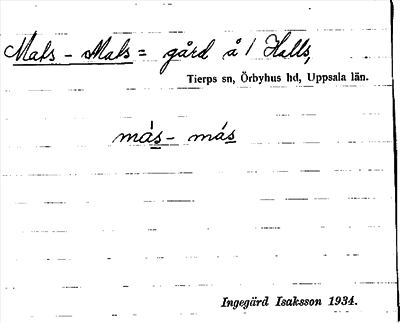 Mats - Mats = gård å 1 Halls,
Tierps sn, Örbyhus hd, Uppsala län.
más - más
Ingegärd Isaksson 1934.